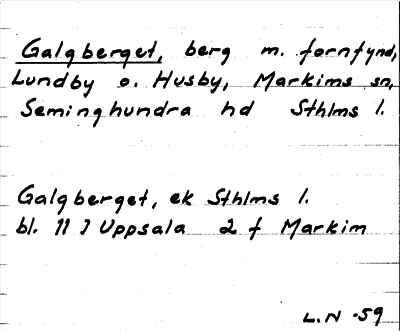 Galgberget, berg m. fornfynd,
Lundby o. Husby, Markims sn,
Seminghundra hd Sthlms l.
Galgberget, ek Sthlms l.
bl. 11 J Uppsala 2 f Markim
L.N -59